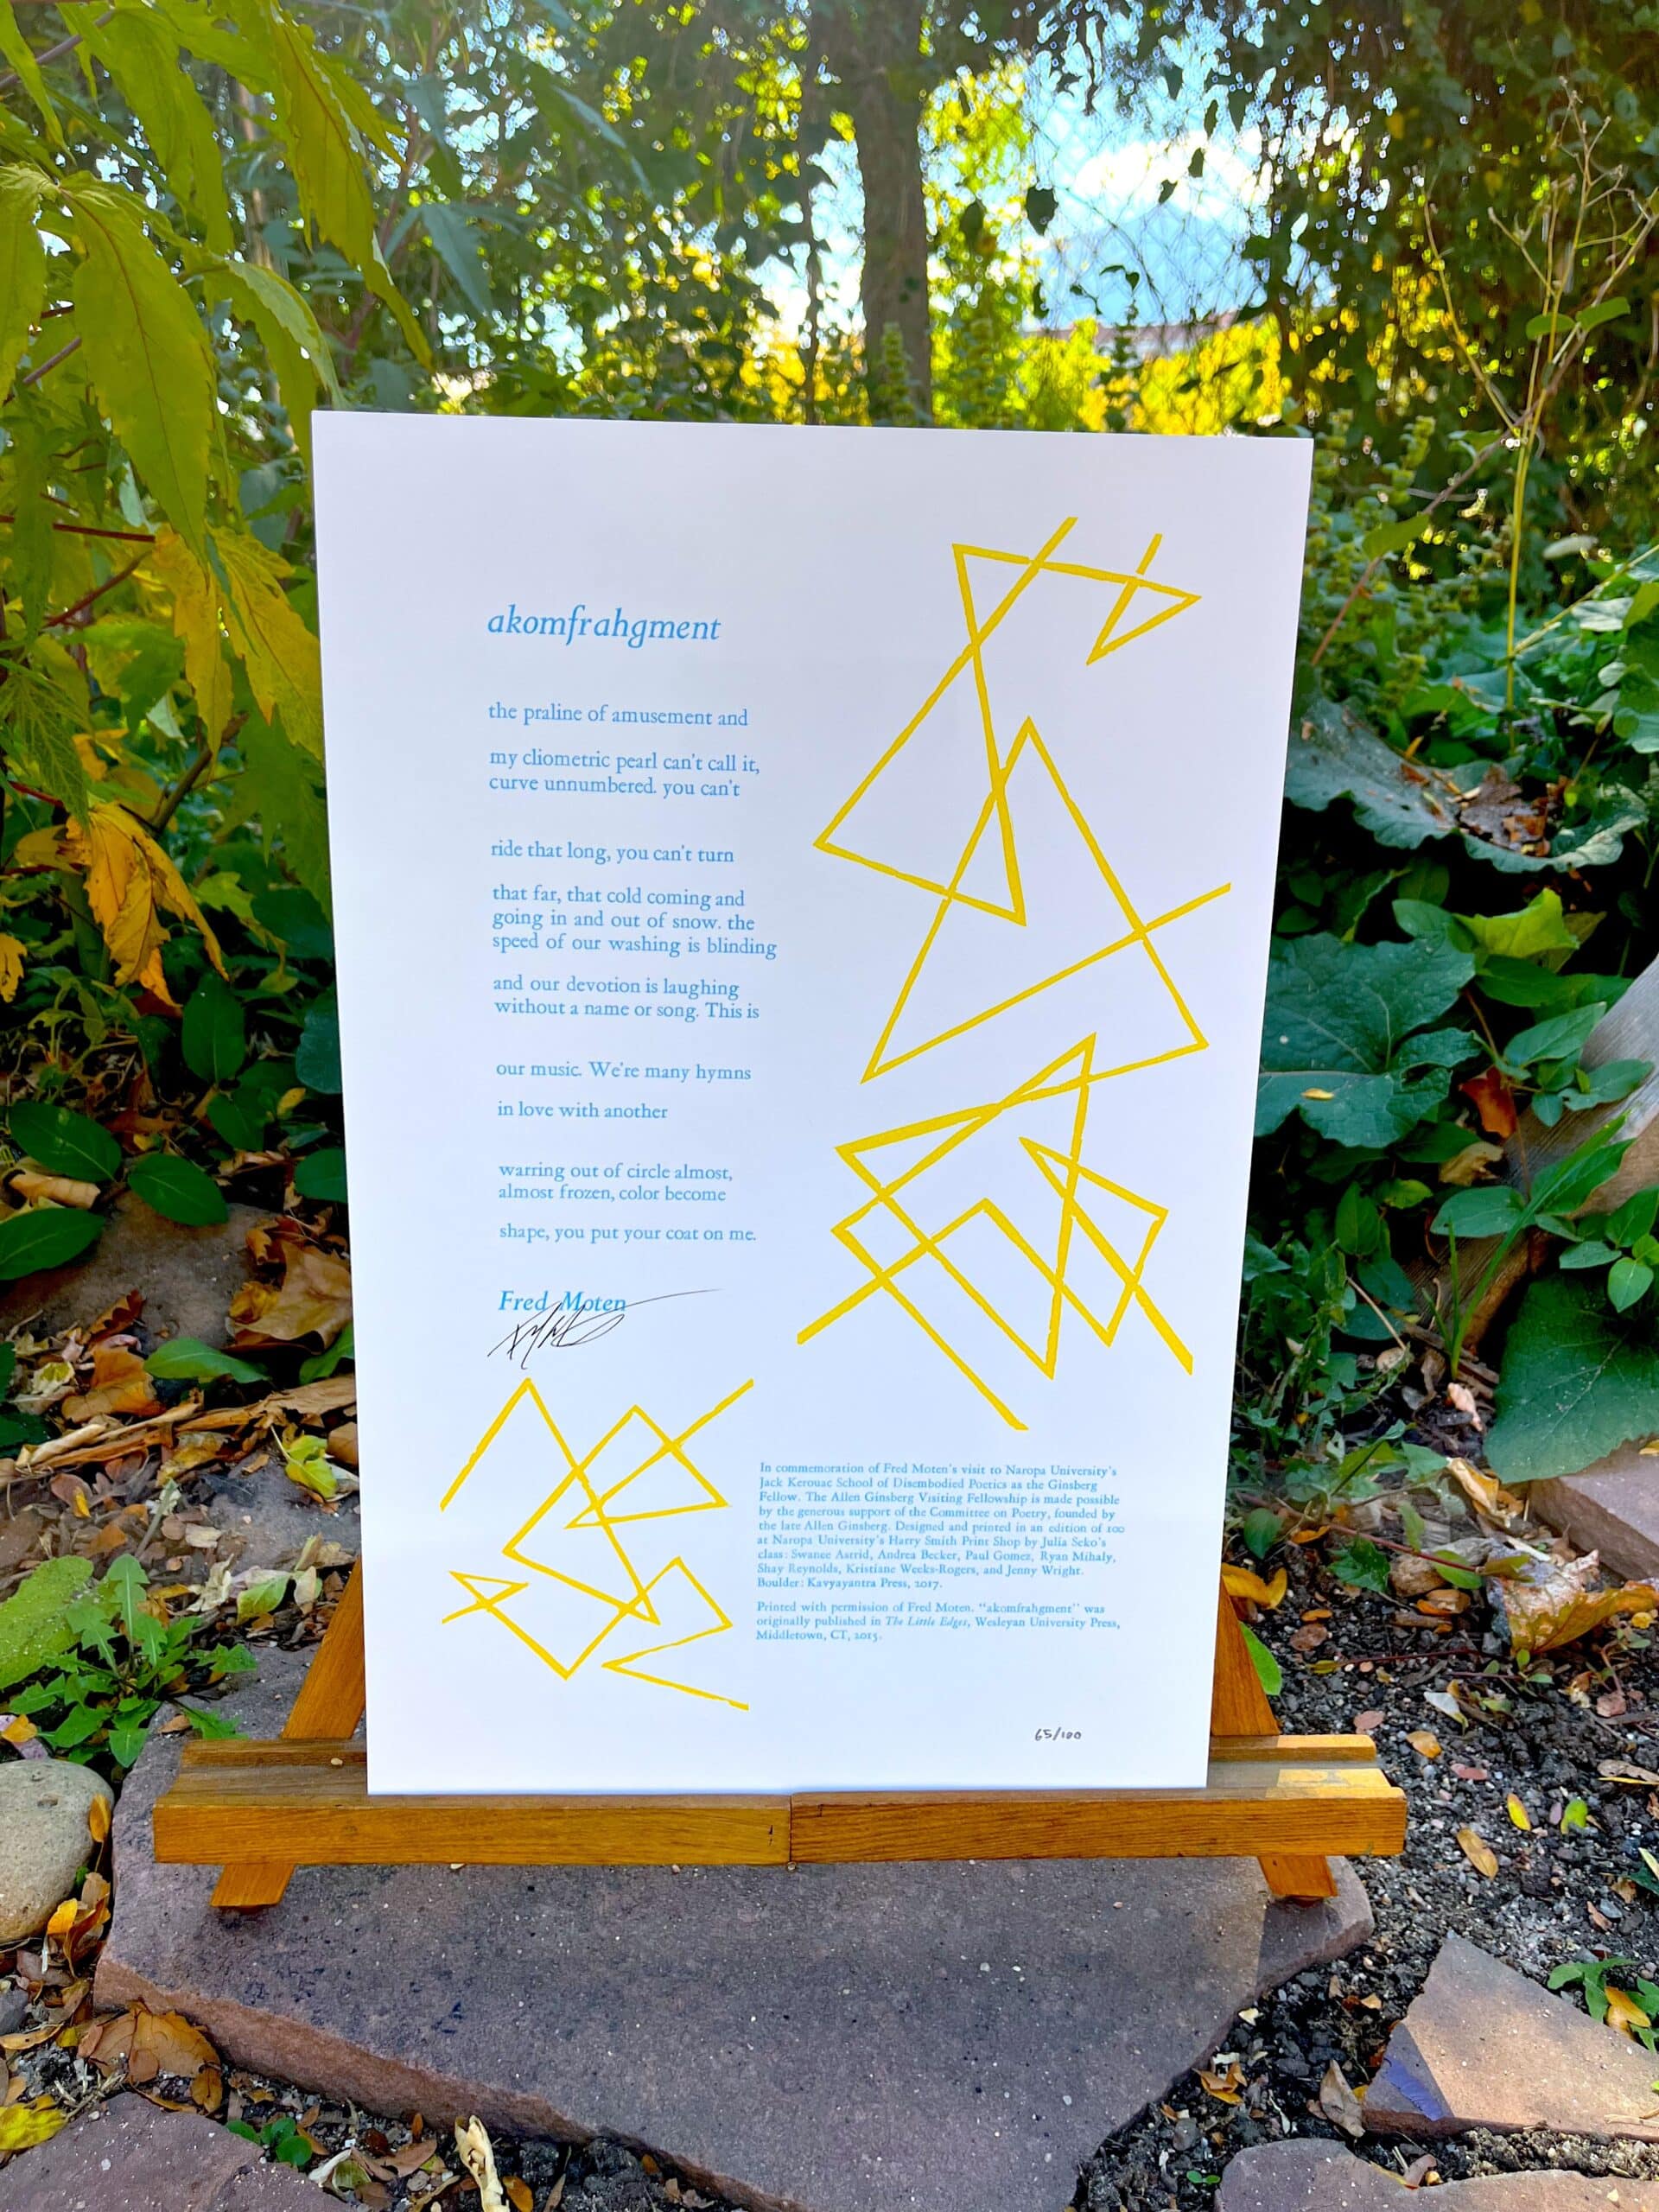 akomfrahgment
the praline of amusement and
my cliometric pearl can't call it,
curve unnumbered. you can't
ride that long, you can't turn
that far, that cold coming and
going in and out of snow. the
speed of our washing is blinding
and our devotion is laughing
without a name or song. This is
our music. We're many hymns
in love with another
warring out of circle almost,
almost frozen, color become
shape, you put your coat on me.
Fred Moten
In commemoration of Fred Moten's visit to Naropa University's
Jack Kerouac School of Disembodied Poetics as the Ginsberg
Fellow. The Allen Ginsberg Visiting Fellowship is made possible
by the generous support of the Committee on Poetry, founded by
the late Allen Ginsberg. Designed and printed in an edition of 100
at Naropa University's Harry Smith Print Shop by Julia Seko's
class: Swanee Astrid, Andrea Becker, Paul Gomez, Ryan Mihaly,
Shay Reynolds, Kristiane Weeks-Rogers, and Jenny Wright.
Boulder: Kavyayantra Press, 2017.
Printed with permission of Fred Moten. "akomfrahgment" was
originally published in The Little Edges, Wesleyan University Press,
Middletown, CT, 2015.
65/100